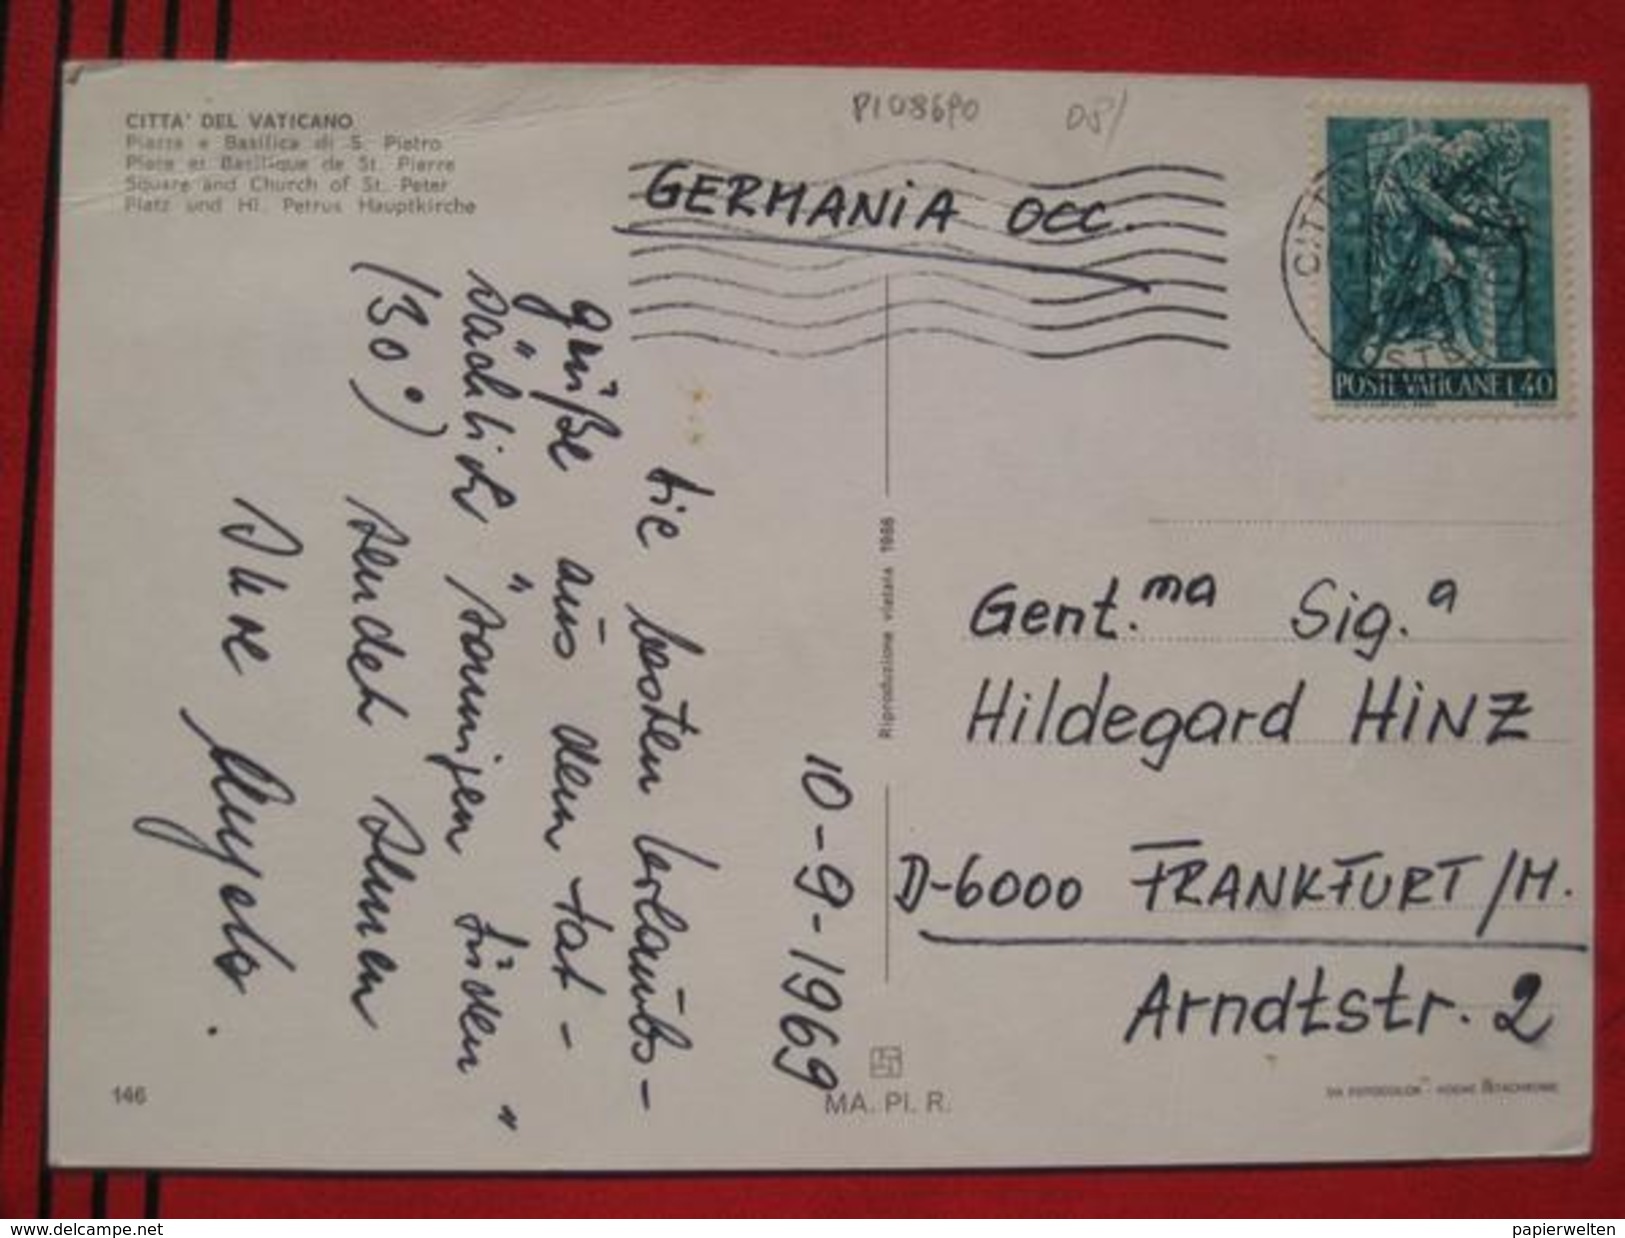 CITTA' DEL VATICANO
Piazza e Basilica di S. Pietro
Place et Basilique de St. Pierre
Square and Church of St. Peter
Platz und Hl. Petrus Hauptkirche
PI08690
GERMANIA OCC.
POSTE VATICANE L.40
10-9-1969
Die besten Urlaubs-
grüße aus dem tat-
sächlich "sonnigen Süden"
(30°) sendet Ihnen
Ihre
Riproduzione vietata 1986
Gent.ma Sig.a
Hildegard HINZ
D-6000 FRANKFURT/M.
Arndtstr. 2
146
MA. PI. R.
www.delcampe.net
papierwelten